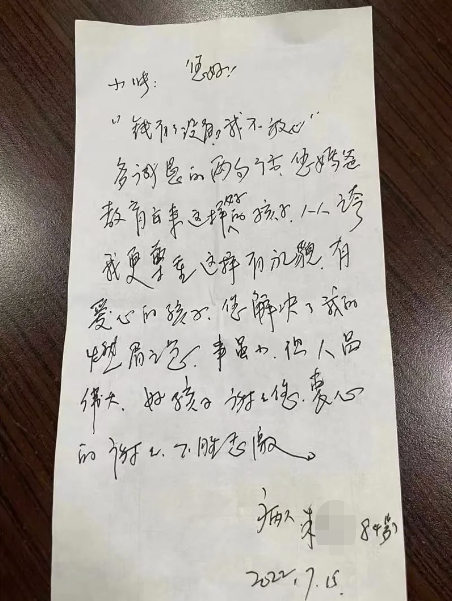 您好!
"钱有了没有?我不放心"
多谢您的两句话.您妈爸
教育出来这样好的孩子.人人夸
我更尊重这样有礼貌,有
爱心的孩子.您解决了我的
燃眉之急.事虽小.但人品
伟大.好孩子谢谢您.衷心
的谢谢.不胜感激。
病人 朱 84岁
2022.7.15.